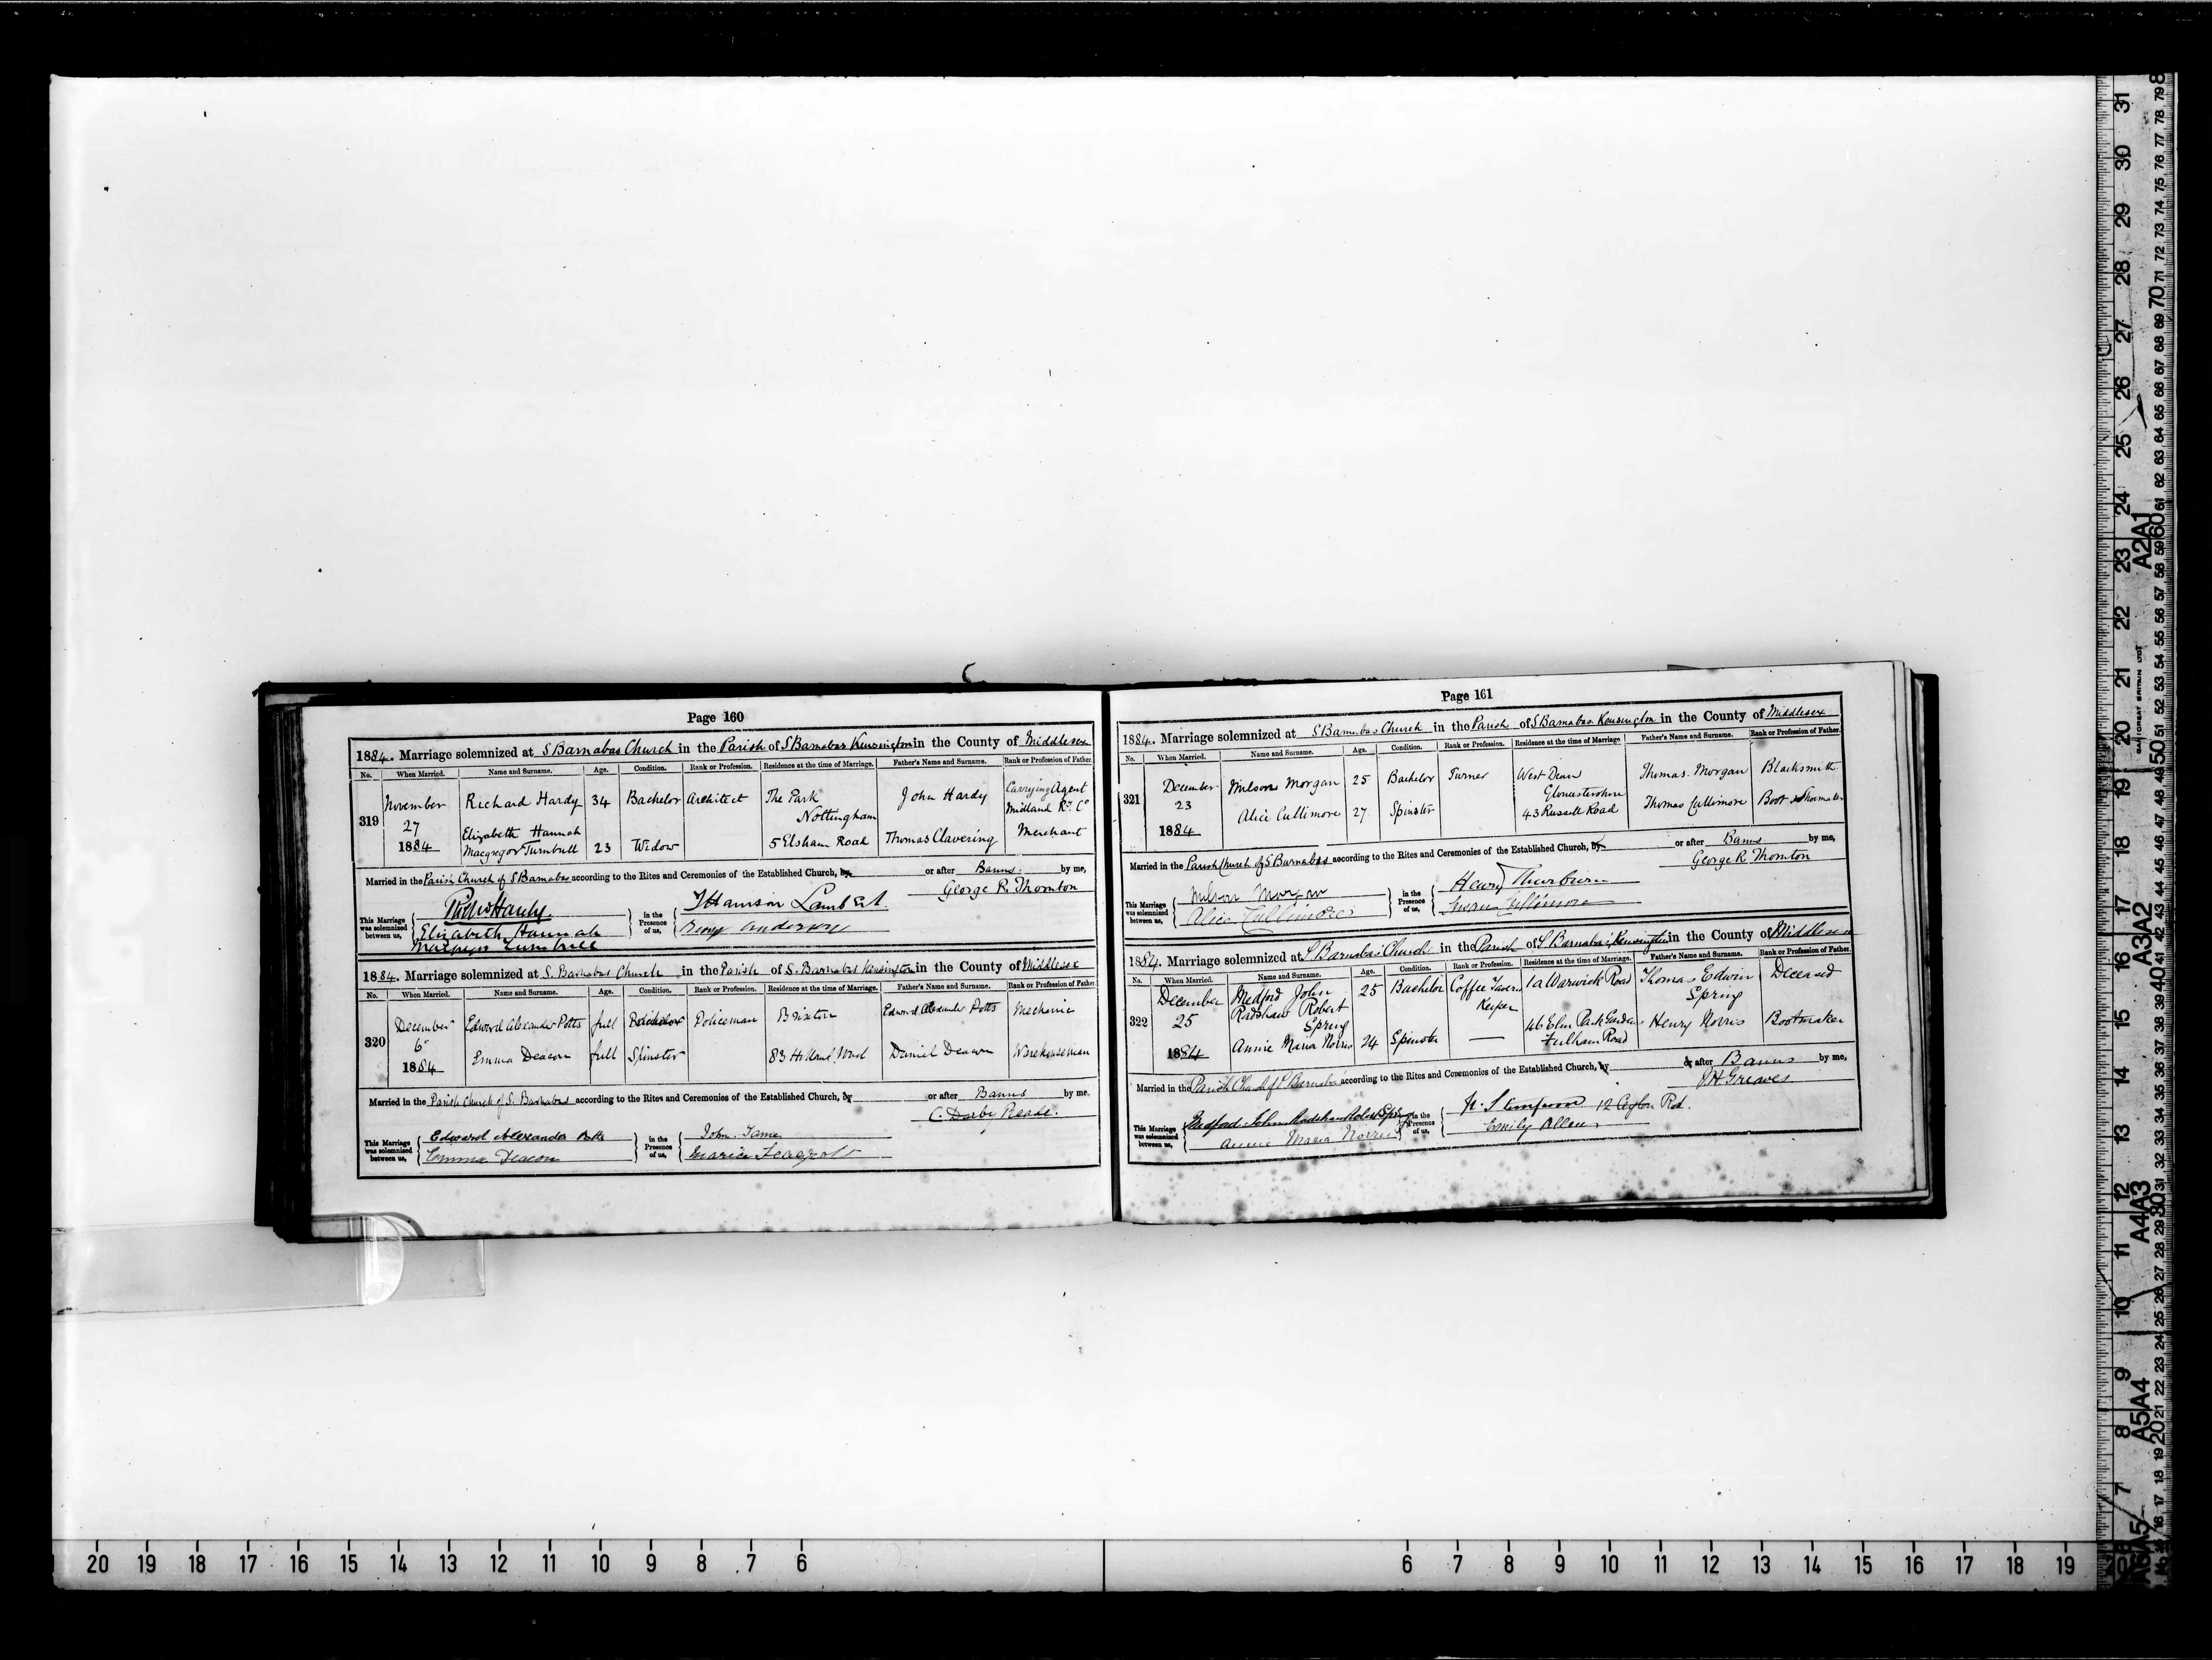 Page 160
1884. Marriage solemnized at S Barnabas Church in the Parish of S Barnabas Kensington in the County of Middlesex
No. When Married. Name and Surname. Age. Condition. Rank or Profession. Residence at the time of Marriage. Father's Name and Surname. Rank or Profession of Father.
319 November 27 1884
Richard Hardy 34 Bachelor Architect The Park Nottingham John Hardy Carrying Agent Midland Ry Co
Elizabeth Hannah Macgregor Turnbull 23 Widow 5 Elsham Road Thomas Clavering Merchant
Married in the Parish Church of S Barnabas according to the Rites and Ceremonies of the Established Church, by or after Banns. by me,
George R. Thornton
This Marriage was solemnized between us, Hardy. Elizabeth Hannah Macgregor Turnbull
in the Presence of us, Harrison Lambert. Anderson
1884. Marriage solemnized at S. Barnabas Church in the Parish of S. Barnabas Kensington in the County of Middlesex
No. When Married. Name and Surname. Age. Condition. Rank or Profession. Residence at the time of Marriage. Father's Name and Surname. Rank or Profession of Father.
320 December 6 1884
Edward Alexander Potts full Bachelor Policeman Brixton Edward Alexander Potts Mechanic
Emma Deacon full Spinster 83 Daniel Deacon Warehouseman
Married in the Parish Church of S. Barnabas according to the Rites and Ceremonies of the Established Church, by or after Banns by me,
C. Darby Reade.
This Marriage was solemnized between us, Edward Alexander Potts Emma Deacon
in the Presence of us, John Maria
Page 161
1884. Marriage solemnized at S Barnabas Church in the Parish of S Barnabas Kensington in the County of Middlesex
No. When Married. Name and Surname. Age. Condition. Rank or Profession. Residence at the time of Marriage Father's Name and Surname. Rank or Profession of Father.
321 December 23 1884
Milson Morgan 25 Bachelor Turner West Dean Gloucestershire Thomas Morgan Blacksmith
Alice Cullimore 27 Spinster 43 Russell Road Thomas Cullimore Boot & Shoemaker
Married in the Parish Church of S Barnabas according to the Rites and Ceremonies of the Established Church, by or after Banns by me,
George R. Thornton
This Marriage was solemnized between us, Milson Morgan Alice Cullimore
in the Presence of us, Henry Thurburn Cullimore
1884. Marriage solemnized at S Barnabas Church in the Parish of S Barnabas Kensington in the County of Middlesex
No. When Married. Name and Surname. Age. Condition. Rank or Profession. Residence at the time of Marriage. Father's Name and Surname. Rank or Profession of Father.
322 December 25 1884
Medford John Radshaw Robert Spring 25 Bachelor Coffee Tavern Keeper 1a Warwick Road Thomas Edwin Spring Deceased
Annie Maria Norris 24 Spinster 46 Elm Park Gardens Fulham Road Henry Norris Bootmaker
Married in the Parish Church of S Barnabas according to the Rites and Ceremonies of the Established Church, by or after Banns by me,
J H Greaves
This Marriage was solemnized between us, Medford John Radshaw Robert Spring Annie Maria Norris
in the Presence of us, Stimpson 12 Ceylon Rd. Emily Allen